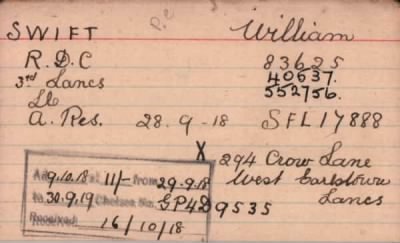 P.C
SWIFT William
R.D.C 83625
3rd Lancs 40637.
Lb 552756.
A. Res. 28.9-18 SFL17888
X 294 Crow Lane
West Earlstown
Lancs
9.10.18 at 11/- from 29.9.18
to 30.9.19 Chelsea No. GP4D9535
Received 16/10/18